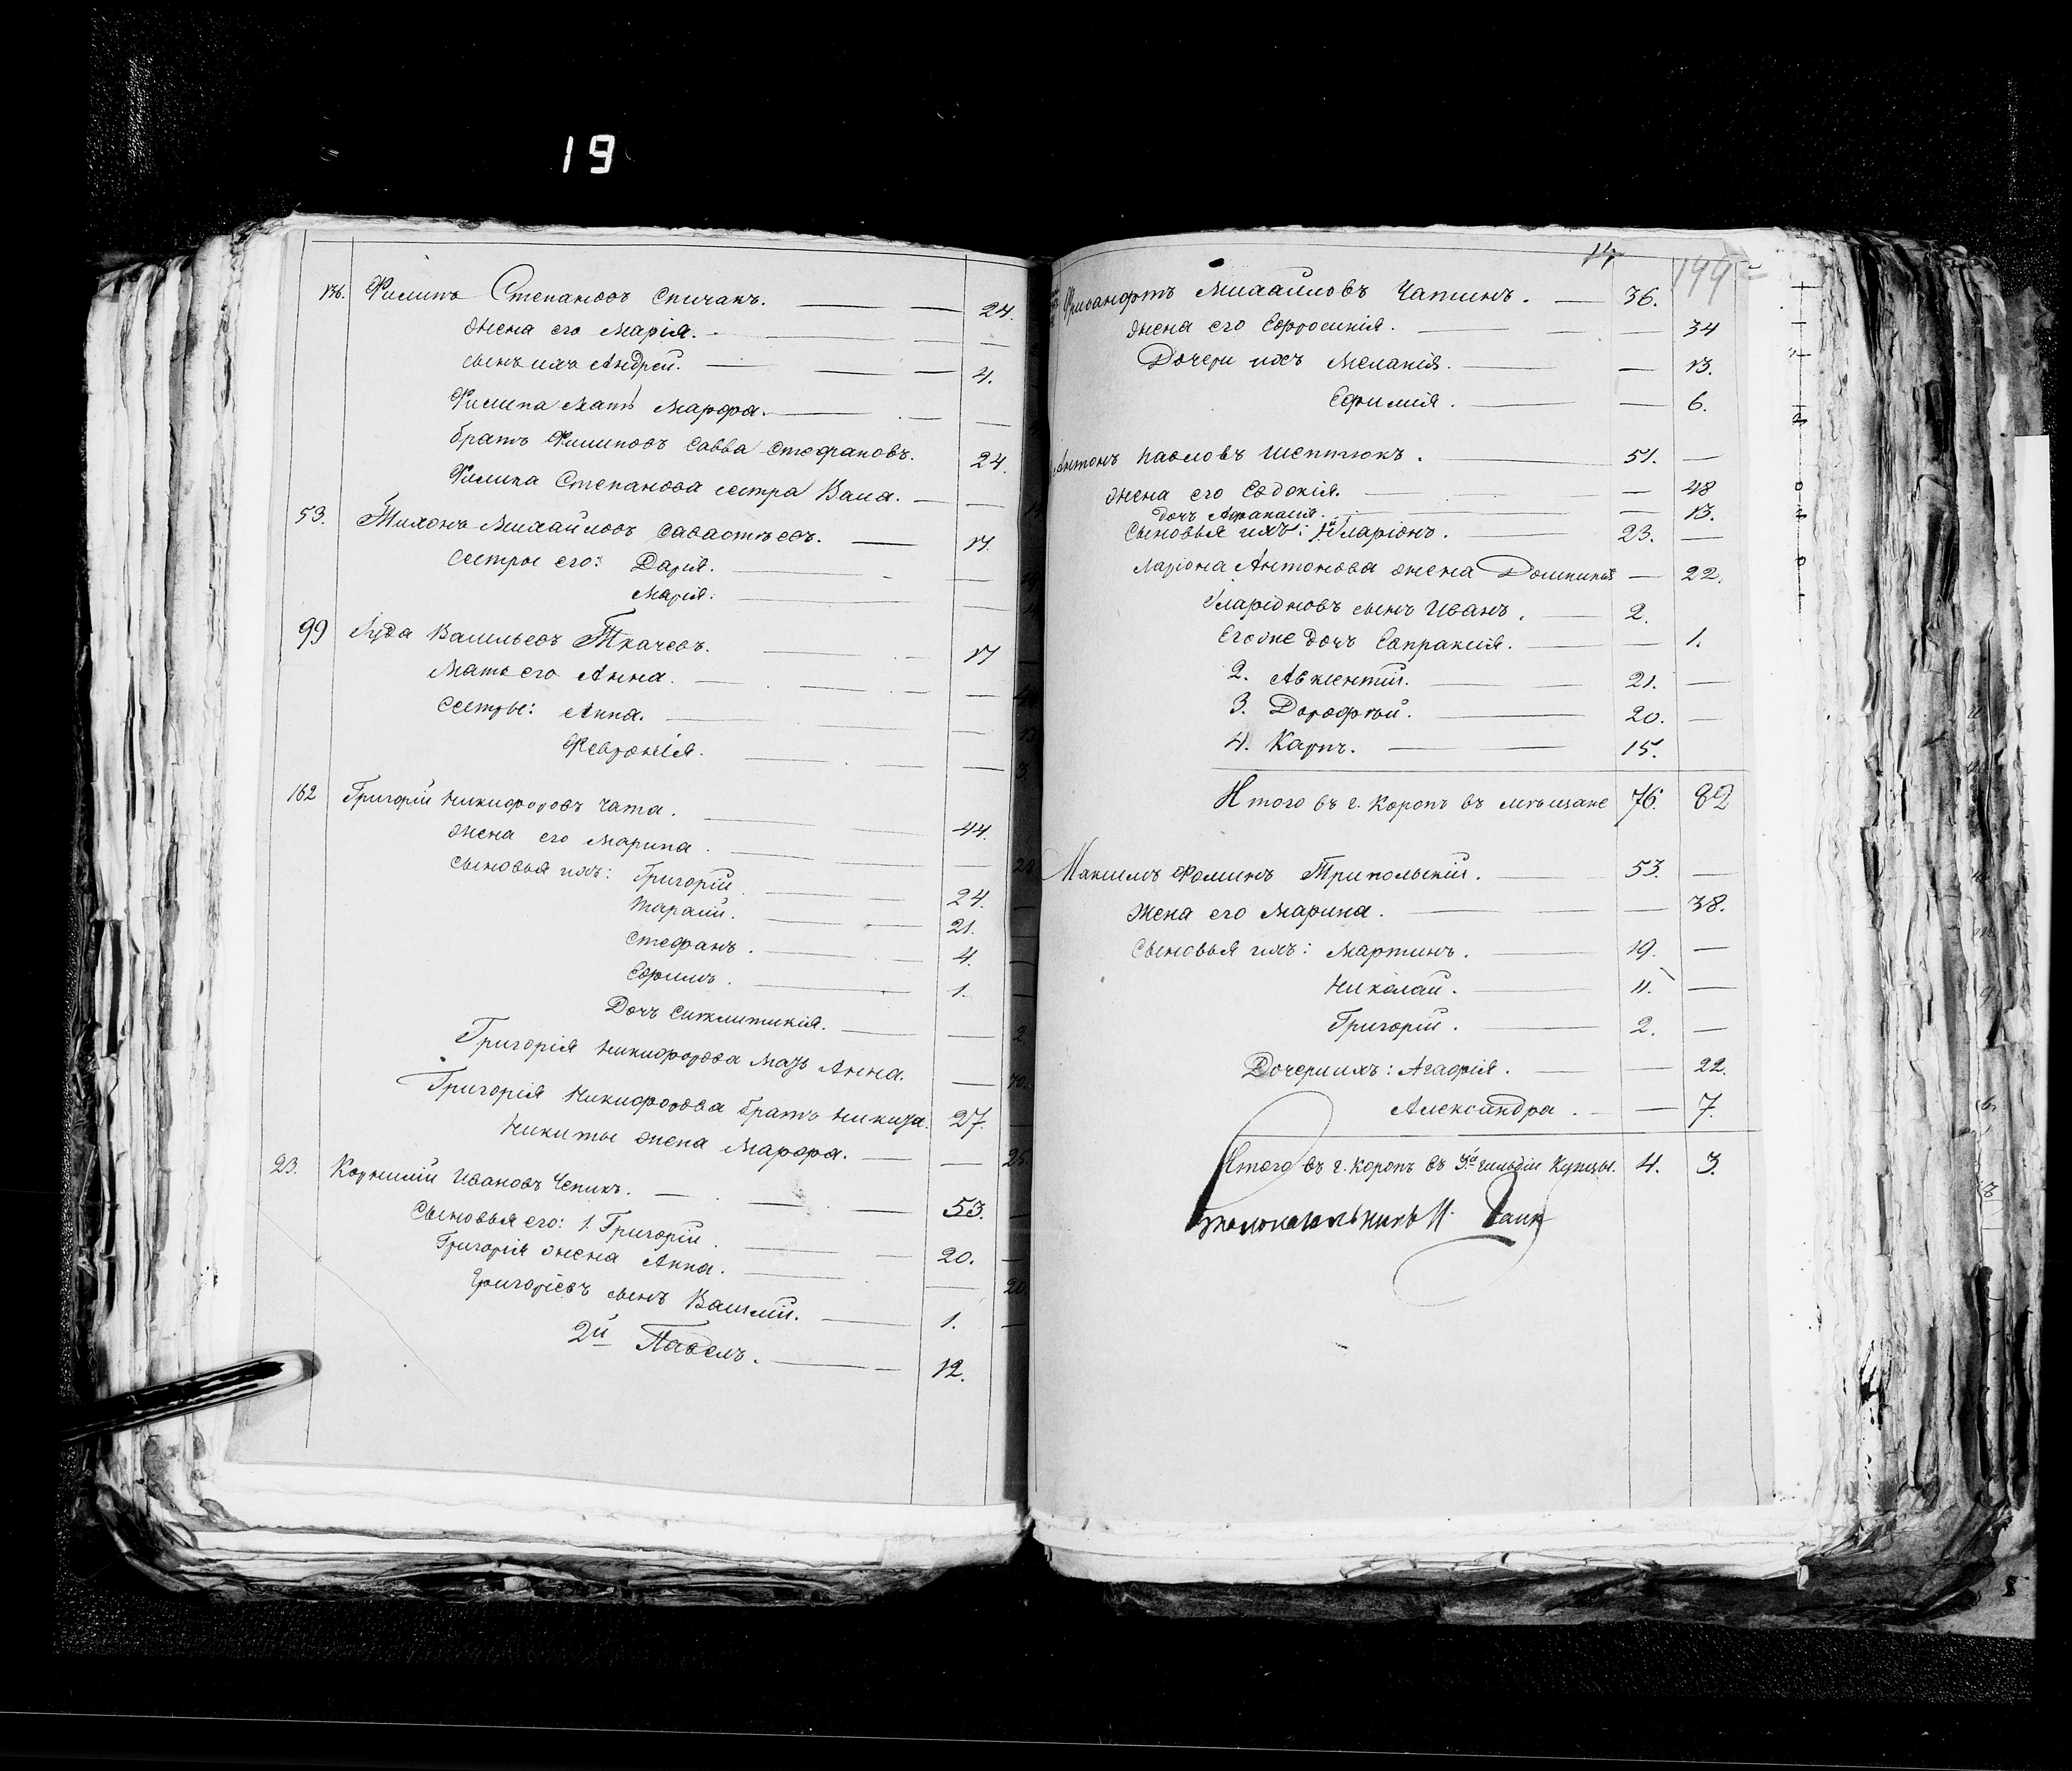 19
136. Филипъ Степановъ Спичакъ. — 24.
жена его Марія. —
сынъ ихъ Андрей. — 4.
Филипа Мать Марфа. —
братъ Филиповъ Савва Стефановъ. 24.
Филипа Степанова сестра Васа. —
53. Тихонъ Михайловъ Савастѣевъ. — 17.
Сестры его: Дарія. —
Марія. —
99 Іуда Васильевъ Ткачевъ. 17
Мать его Анна. —
Сестры: Анна. —
Февронія. — 3.
162 Григорій Никифоровъ Чата. 44.
жена его Марина. —
Сыновья ихъ: Григорій. — 24.
Тарасій. — 21.
Стефанъ. — 4.
Ефимъ. — 1.
Дочь Сиклитикія. — 2.
Григорія Никифорова Мать Анна. — 70.
Григорія Никифорова братъ Никита. 27.
Никиты жена Марфа. — 25.
23. Корнилій Ивановъ Чепикъ. — 53.
Сыновья его: 1. Григорій. — 20.
Григорія жена Анна. — 20.
Григоріевъ сынъ Василій. — 1. —
2й Павелъ. — 12.
14
144
Михайловъ Чатинъ. — 36.
жена его Ефросинія. — 34
Дочери ихъ Меланія. — 13.
Ефимія. — 6.
Антонъ Павловъ Шептюкъ. 51. —
жена его Евдокія. — 48
дочь Афанасія. — 13.
Сыновья ихъ: 1й Иларіонъ. 23. —
Ларіона Антонова жена Домникія — 22.
Иларіоновъ сынъ Иванъ. 2.
Егоже дочь Евпраксія. — 1.
2. Авксентій. 21. —
3. Дорофѣй. 20. —
4. Карпъ. 15.
Итого въ г. Коропѣ въ мѣщане 76. 82
Максимъ Фоминъ Трипольскій. 53. —
жена его Марина. — 38.
Сыновья ихъ: Мартинъ. 19. —
Николай. 11. —
Григорій. 2. —
Дочери ихъ: Агафія. — 22.
Александра. — 7.
Итого въ г. Коропѣ въ 3й гильдіи Купцы. 4. 3.